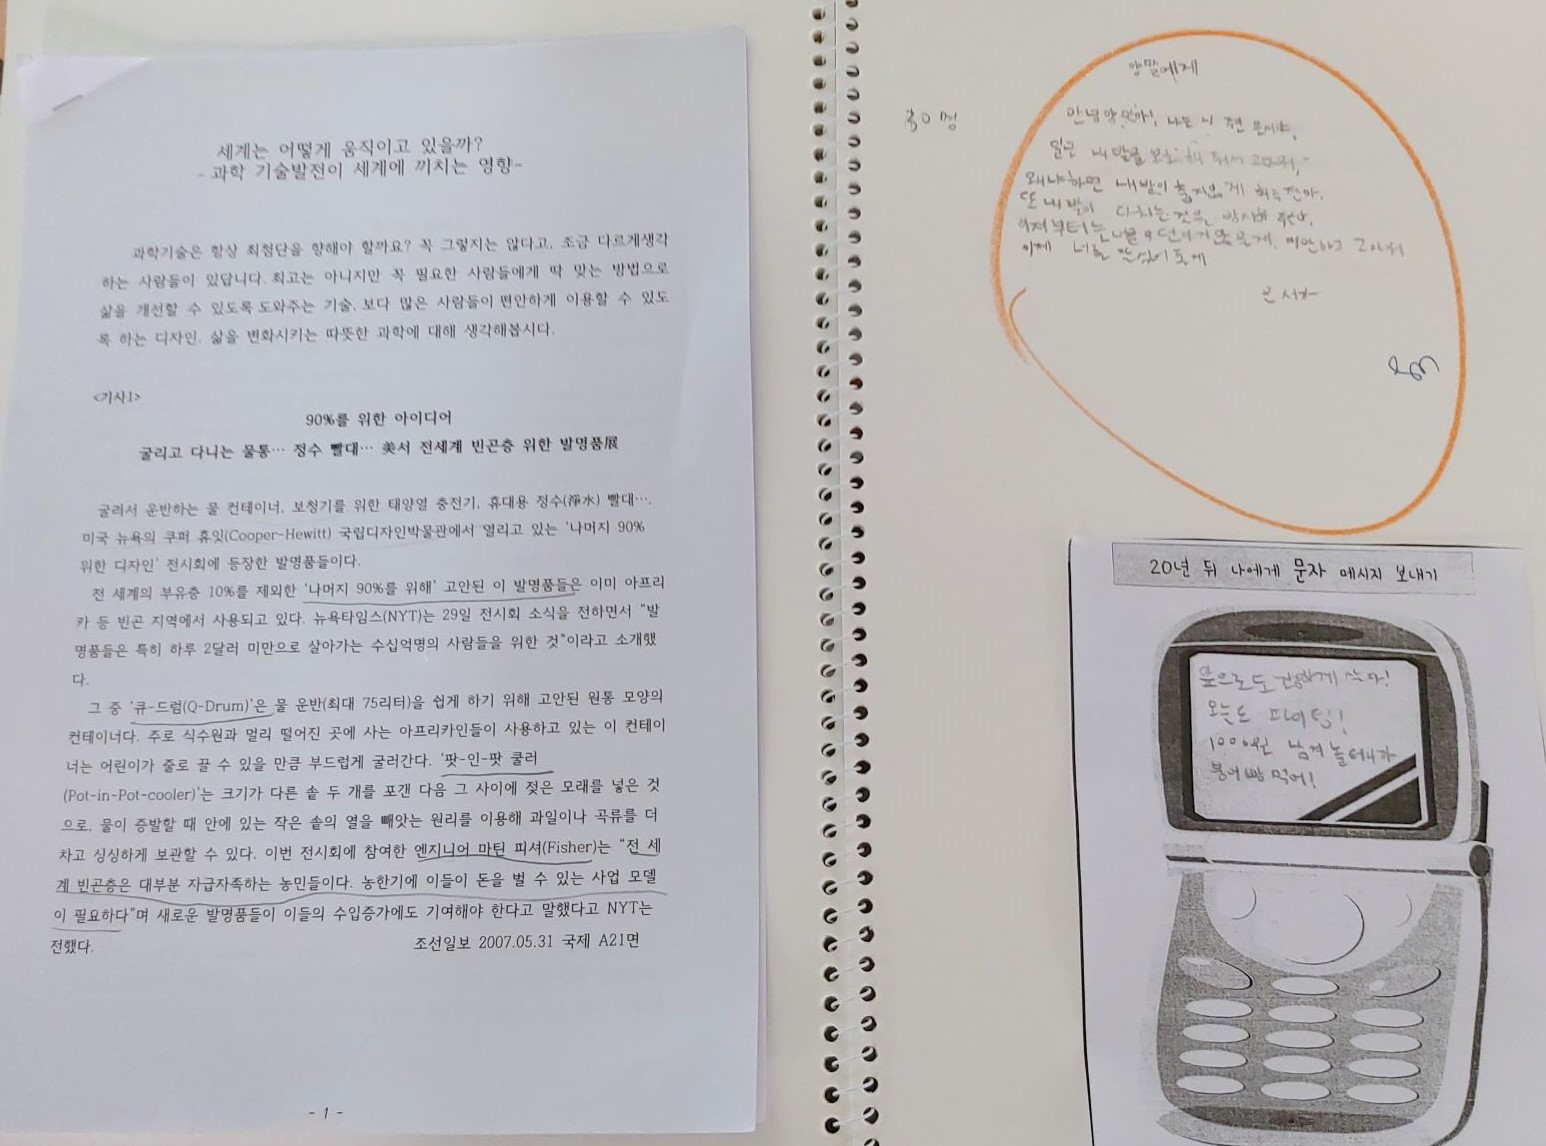 세계는 어떻게 움직이고 있을까?
- 과학 기술발전이 세계에 끼치는 영향-
과학기술은 항상 최첨단을 향해야 할까요? 꼭 그렇지는 않다고, 조금 다르게생각
하는 사람들이 있답니다. 최고는 아니지만 꼭 필요한 사람들에게 딱 맞는 방법으로
삶을 개선할 수 있도록 도와주는 기술, 보다 많은 사람들이 편안하게 이용할 수 있도
록 하는 디자인. 삶을 변화시키는 따뜻한 과학에 대해 생각해봅시다.
<기사1>
90%를 위한 아이디어
굴리고 다니는 물통… 정수 빨대… 美서 전세계 빈곤층 위한 발명품展
굴려서 운반하는 물 컨테이너, 보청기를 위한 태양열 충전기, 휴대용 정수(淨水) 빨대….
미국 뉴욕의 쿠퍼 휴잇(Cooper-Hewitt) 국립디자인박물관에서 열리고 있는 '나머지 90%
위한 디자인' 전시회에 등장한 발명품들이다.
전 세계의 부유층 10%를 제외한 '나머지 90%를 위해' 고안된 이 발명품들은 이미 아프리
카 등 빈곤 지역에서 사용되고 있다. 뉴욕타임스(NYT)는 29일 전시회 소식을 전하면서 "발
명품들은 특히 하루 2달러 미만으로 살아가는 수십억명의 사람들을 위한 것"이라고 소개했
다.
그 중 '큐-드럼(Q-Drum)'은 물 운반(최대 75리터)을 쉽게 하기 위해 고안된 원통 모양의
컨테이너다. 주로 식수원과 멀리 떨어진 곳에 사는 아프리카인들이 사용하고 있는 이 컨테이
너는 어린이가 줄로 끌 수 있을 만큼 부드럽게 굴러간다. '팟-인-팟 쿨러
(Pot-in-Pot-cooler)'는 크기가 다른 솥 두 개를 포갠 다음 그 사이에 젖은 모래를 넣은 것
으로, 물이 증발할 때 안에 있는 작은 솥의 열을 빼앗는 원리를 이용해 과일이나 곡류를 더
차고 싱싱하게 보관할 수 있다. 이번 전시회에 참여한 엔지니어 마틴 피셔(Fisher)는 "전 세
계 빈곤층은 대부분 자급자족하는 농민들이다. 농한기에 이들이 돈을 벌 수 있는 사업 모델
이 필요하다"며 새로운 발명품들이 이들의 수입증가에도 기여해야 한다고 말했다고 NYT는
전했다.
조선일보 2007.05.31 국제 A21면
- 1 -
양말에게
안녕 양말아! 나는 니 주인
내 발을 보호해 줘서 고마워,
왜냐하면 내 발이 해주잖아,
또 내 발이 다치는 것을 방지해 주잖아,
이제부터는 않을게, 미안하고 고마워
이제 너를
20년 뒤 나에게 문자 메시지 보내기
앞으로도 건강하게 살자!
오늘도 파이팅!
1000원 남겨 놓을테니까
붕어빵 먹어!